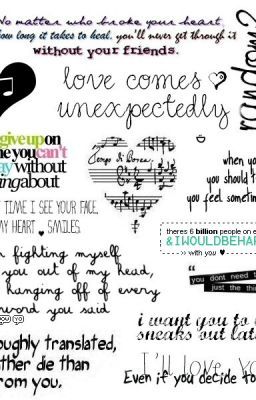 No matter who broke your heart
how long it takes to heal. you'll never get through it
without your friends.
random?
love comes
unexpectedly
give up on
you can't
day without
about
Tempo di Borea
when you
you should
you feel
TIME I SEE YOUR FACE,
MY HEART ♥ SMILES.
theres 6 billion people on e
& I WOULD BE HA
with you ♥
fighting myself
you out of my head,
hanging off of every
word you said
you dont need
just the
YOU
yo
i want you to
sneaks out
oughly translated,
ather die than
rom you.
I'll love yo
Even if you decide to